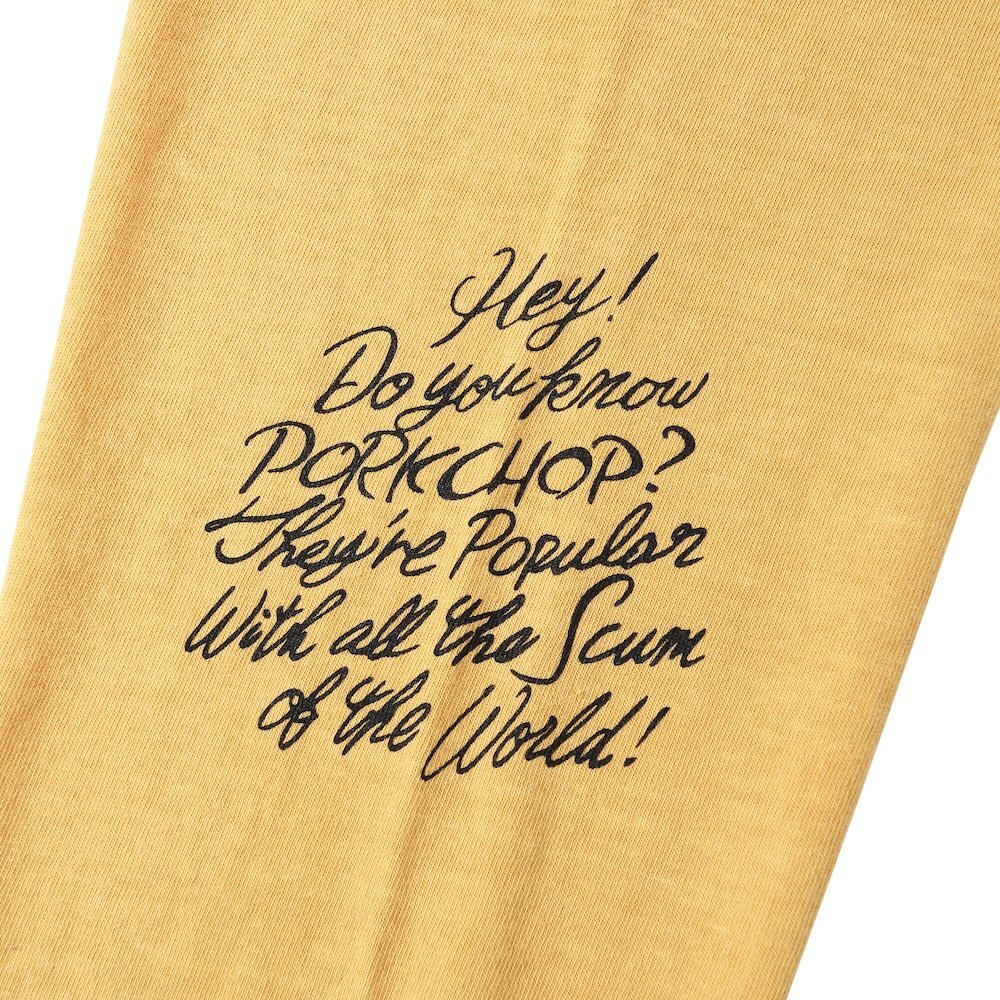 Hey!
Do you know
PORKCHOP?
They're Popular
With all the Scum
of the World!